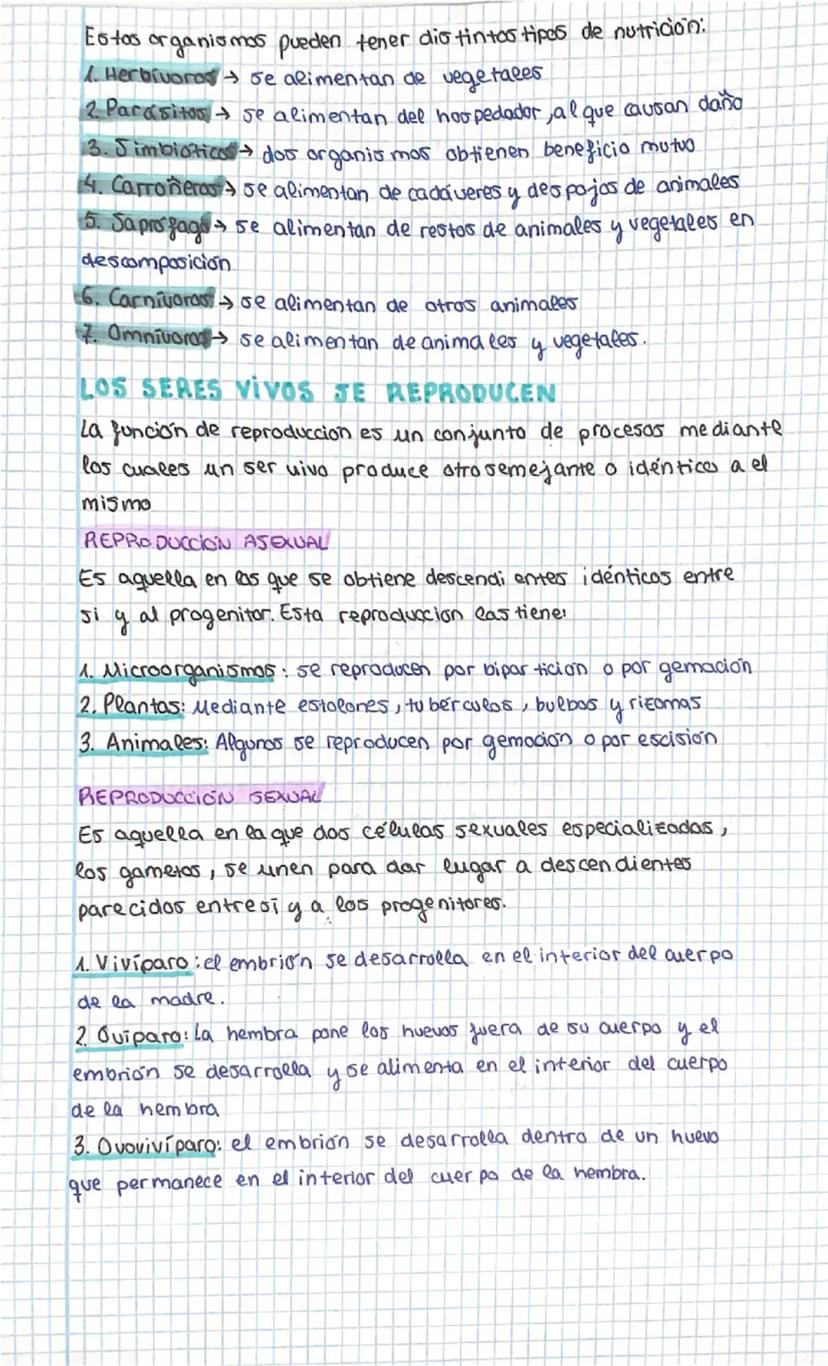 Estos organismos pueden tener distintos tipos de nutrición:
1. Herbívoros → se alimentan de vegetales
2. Parásitos → se alimentan del hospedador, al que causan daño
3. Simbióticos → dos organismos obtienen beneficio mutuo
4. Carroñeros → se alimentan de cadáveres y despojos de animales
5. Saprófago → se alimentan de restos de animales y vegetales en
descomposición
6. Carnívoros → se alimentan de otros animales
7. Omnívoros → se alimentan de animales y vegetales.
LOS SERES VIVOS SE REPRODUCEN
La función de reproduccion es un conjunto de procesos mediante
los cuales un ser vivo produce otro semejante o idéntico a el
mismo
REPRODUCCIÓN ASEXUAL
Es aquella en las que se obtiene descendientes idénticos entre
si y al progenitor. Esta reproduccion las tiene:
1. Microorganismos: se reproducen por bipartición o por gemación
2. Plantas: Mediante estolones, tubérculos, bulbos y rizomas
3. Animales: Algunos se reproducen por gemación o por escisión
REPRODUCCIÓN SEXUAL
Es aquella en la que dos células sexuales especializadas,
los gametos, se unen para dar lugar a descendientes
parecidos entre sí y a los progenitores.
1. Vivíparo: el embrión se desarrolla en el interior del cuerpo
de la madre.
2. Ovíparo: La hembra pone los huevos fuera de su cuerpo y el
embrión se desarrolla y se alimenta en el interior del cuerpo
de la hembra
3. Ovovivíparo: el embrión se desarrolla dentro de un huevo
que permanece en el interior del cuerpo de la hembra.